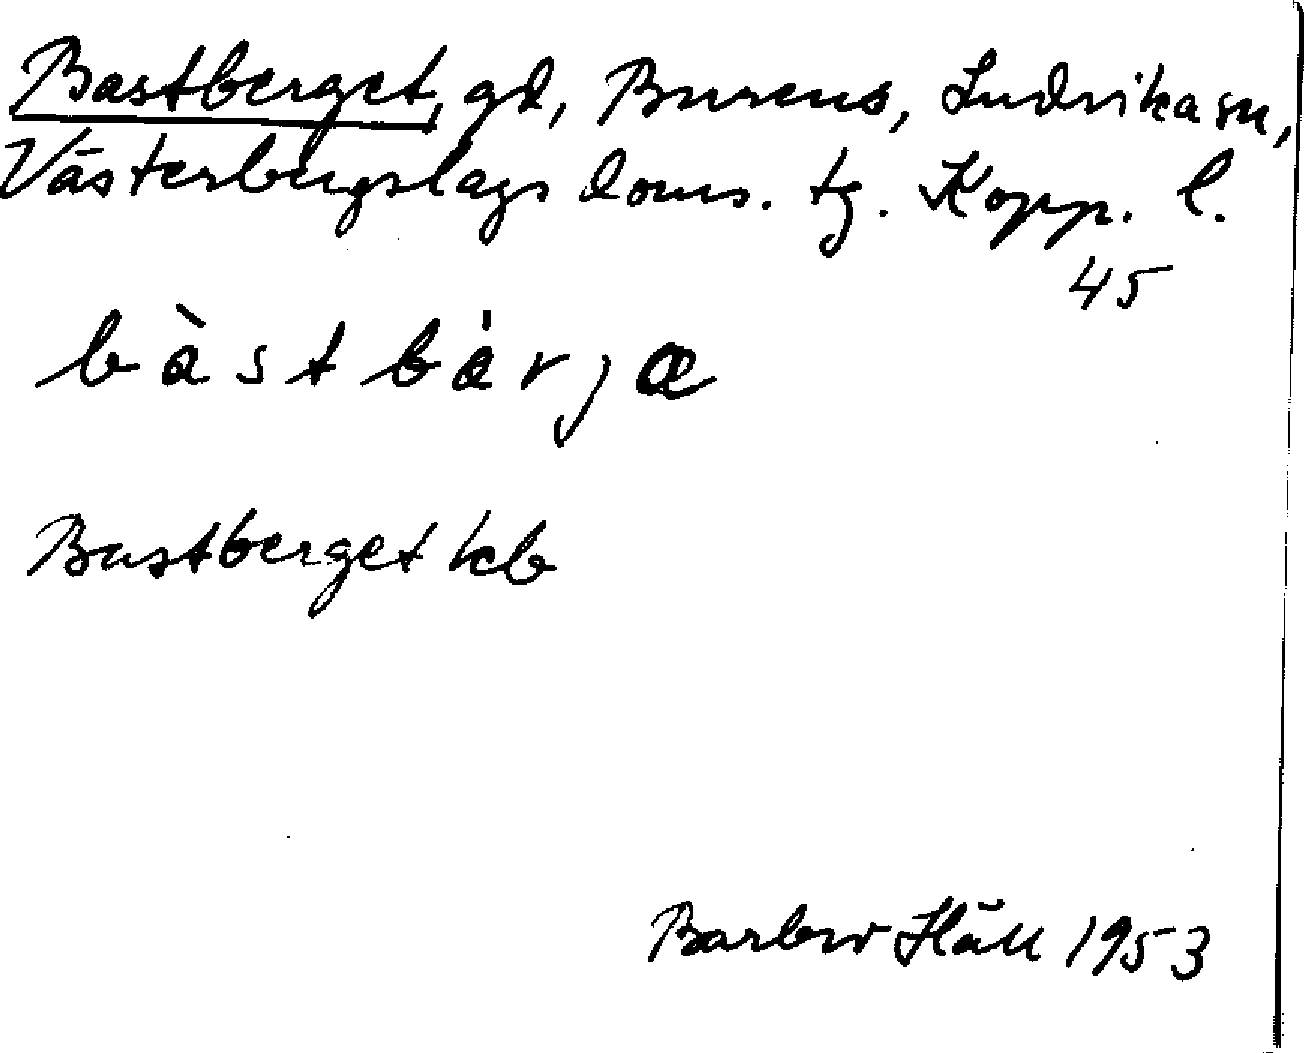 Bastberget, gd, Burens, Ludvika sn,
Västerbergslags doms. tg. Kopp. l.
45
bàstbárja
Bastberget kb
Barbro Häll 1953